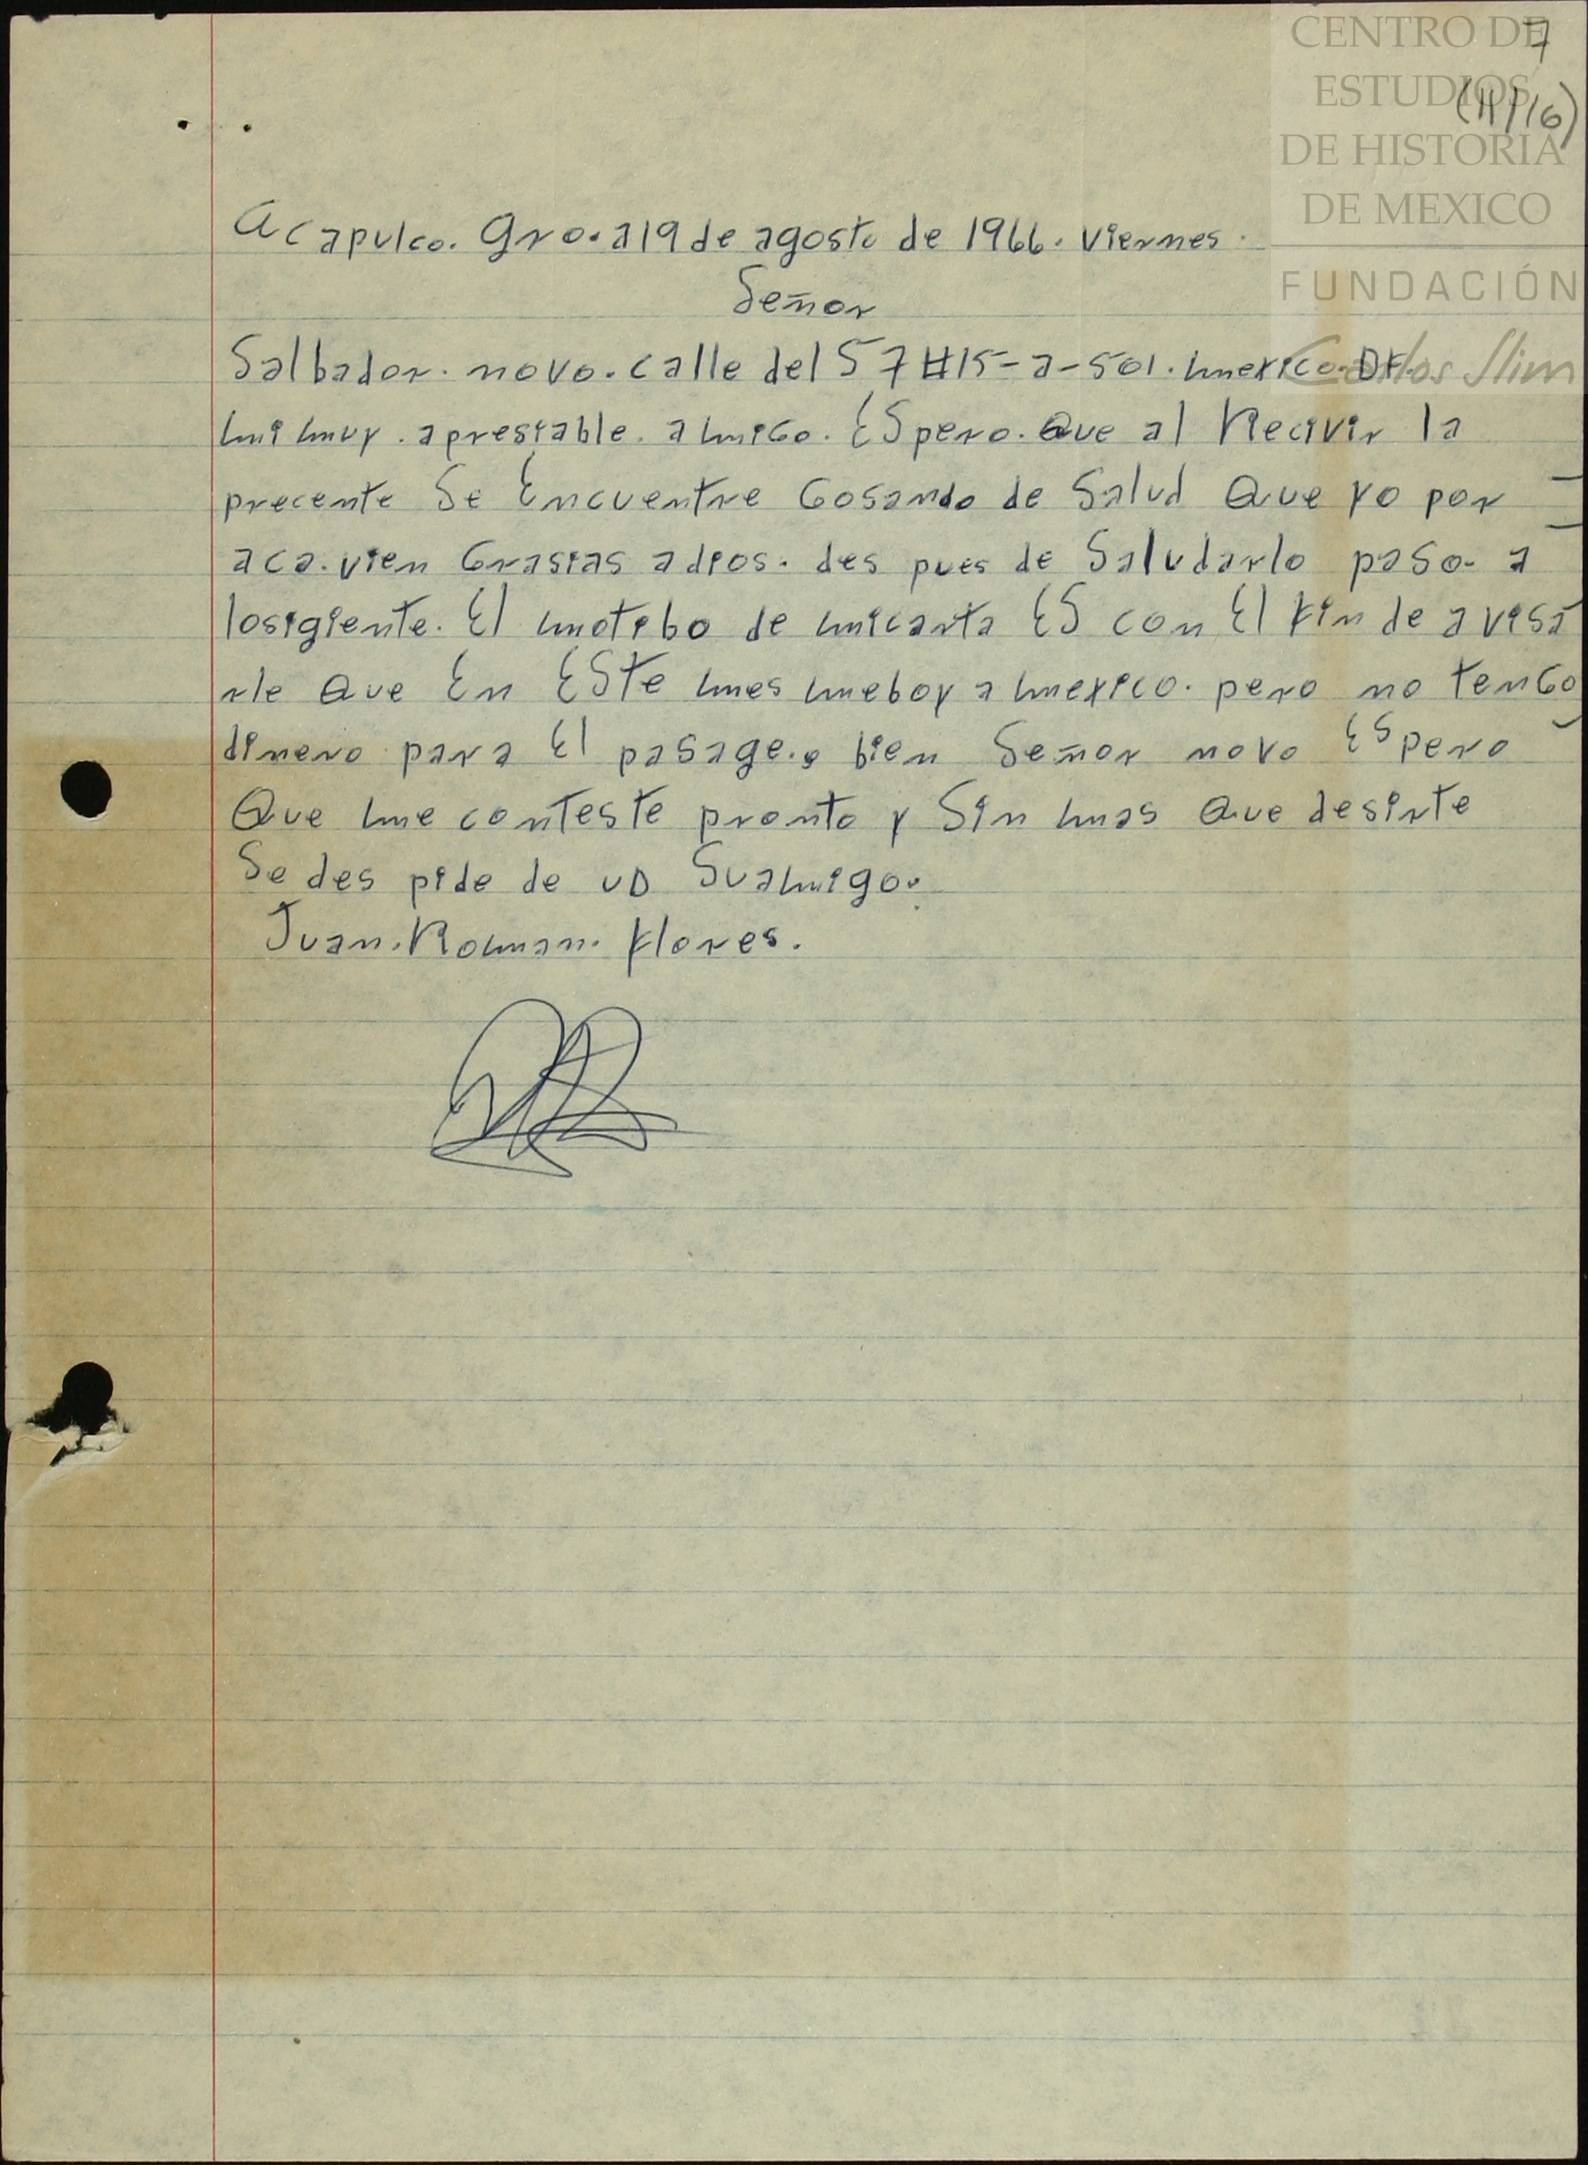 CENTRO DE
ESTUDIOS
DE HISTORIA
DE MEXICO
FUNDACIÓN
Carlos Slim
7
(H/16)
Acapulco. gro. a 19 de agosto de 1966. viernes.
Señor
Salbador. novo. calle del 57 #15-a-501. mexico. DF.
mi muy. apresiable. amiGo. ESpero. Que al Recivir la
precente Se Encuentre Gosando de Salud Que yo por
aca. vien Grasias adios. des pues de Saludarlo paso. a
losigiente. El motibo de micarta ES con El fin de avisa
rle Que En ESte mes meboy a mexico. pero no tenGo
dinero para El pasage. bien Señor novo ESpero
Que me conteste pronto y Sin mas Que desirte
Se des pide de UD Suamigo.
Juan. Roman. flores.